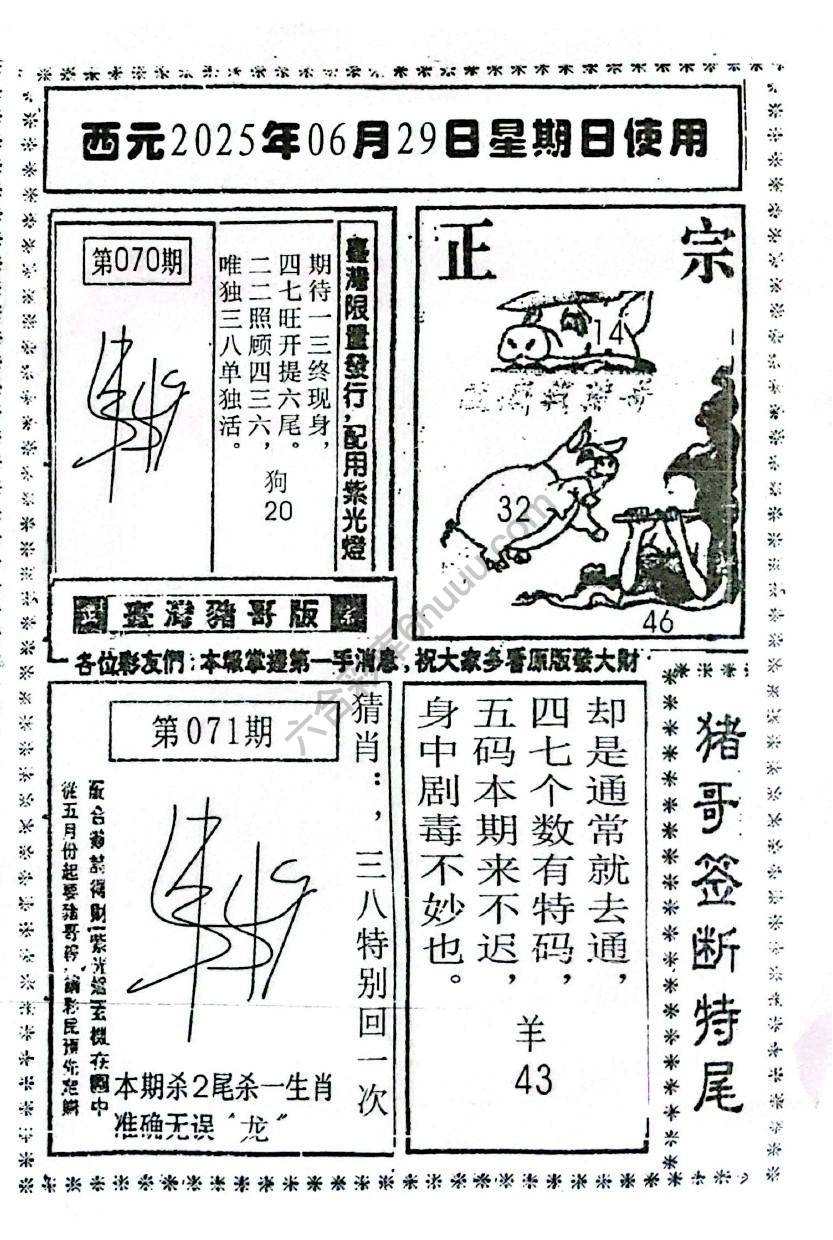 西元2025年06月29日星期日使用
第070期
期待一三终现身，
四七旺开提六尾。
二二照顾四三六，
唯独三八单独活。
狗
20
臺灣限量發行，配用紫光燈
正宗
14
32
46
臺灣豬哥版
各位彩友們：本報掌握第一手消息，祝大家多看原版發大財
第071期
猜肖：，三八特别回一次
從五月份起要豬哥
本期杀2尾杀一生肖
准确无误“龙”
却是通常就去通，
四七个数有特码，
五码本期来不迟，
身中剧毒不妙也。
羊
43
猪哥签断特尾
六合彩库6huuu.com